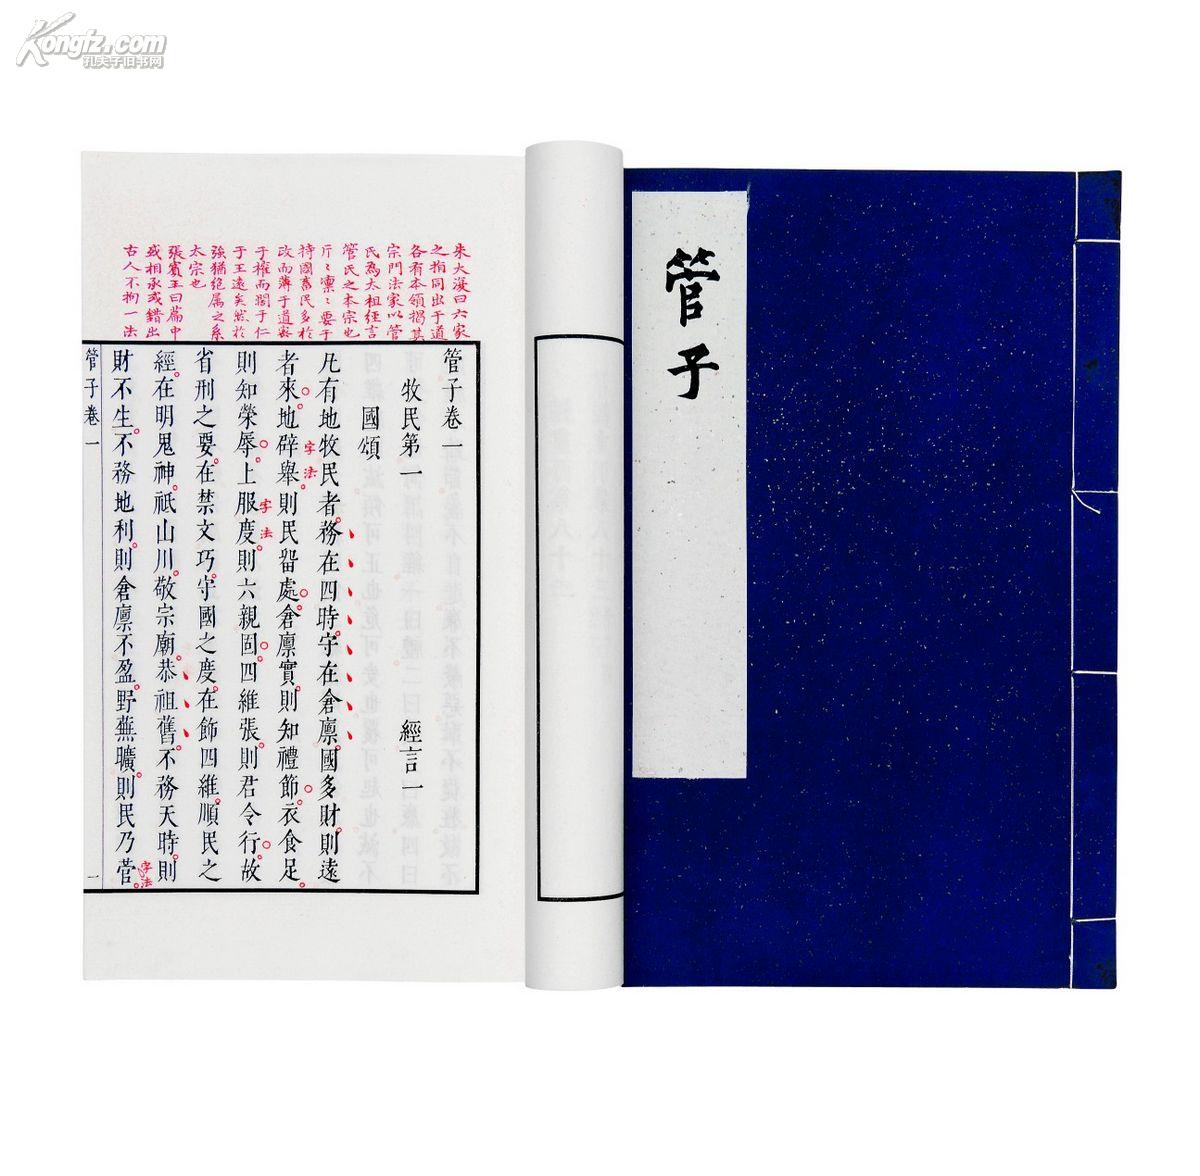 Kongfz.com
孔夫子旧书网
管子
朱大復曰六家
之指同出于道
各有本領獨其
宗門法家以管
氏為太祖經言
管氏之本宗也
斤〻稟〻要于
持國畜民多於
政而薄于道密
于權而闊于仁
于王遠矣然於
強猶絕屬之系
太宗也
張賓王曰篇中
或相承或錯出
古人不拘一法
管子卷一
牧民第一 經言一
國頌
凡有地牧民者務在四時守在倉廩國多財則遠
者來地辟舉則民畱處倉廩實則知禮節衣食足
則知榮辱上服度則六親固四維張則君令行故
省刑之要在禁文巧守國之度在飾四維順民之
經在明鬼神祇山川敬宗廟恭祖舊不務天時則
財不生不務地利則倉廩不盈野蕪曠則民乃菅
字法
字法
字法
管子卷一
一